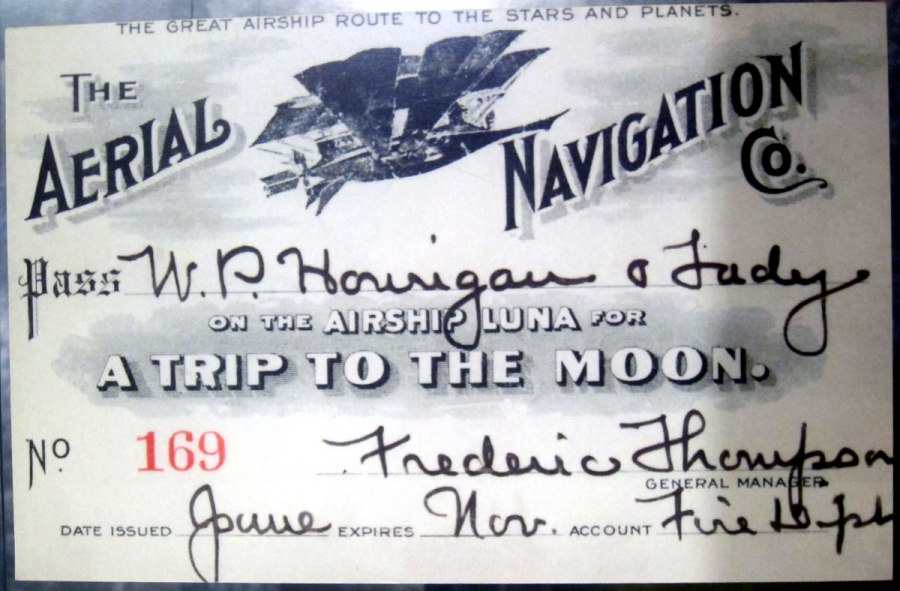 THE GREAT AIRSHIP ROUTE TO THE STARS AND PLANETS.
THE
AERIAL NAVIGATION
CO.
Pass W. P. Hourigan & Lady
ON THE AIRSHIP LUNA FOR
A TRIP TO THE MOON.
No 169 Frederic Thompson
GENERAL MANAGER
DATE ISSUED June EXPIRES Nov. ACCOUNT Fire Dept